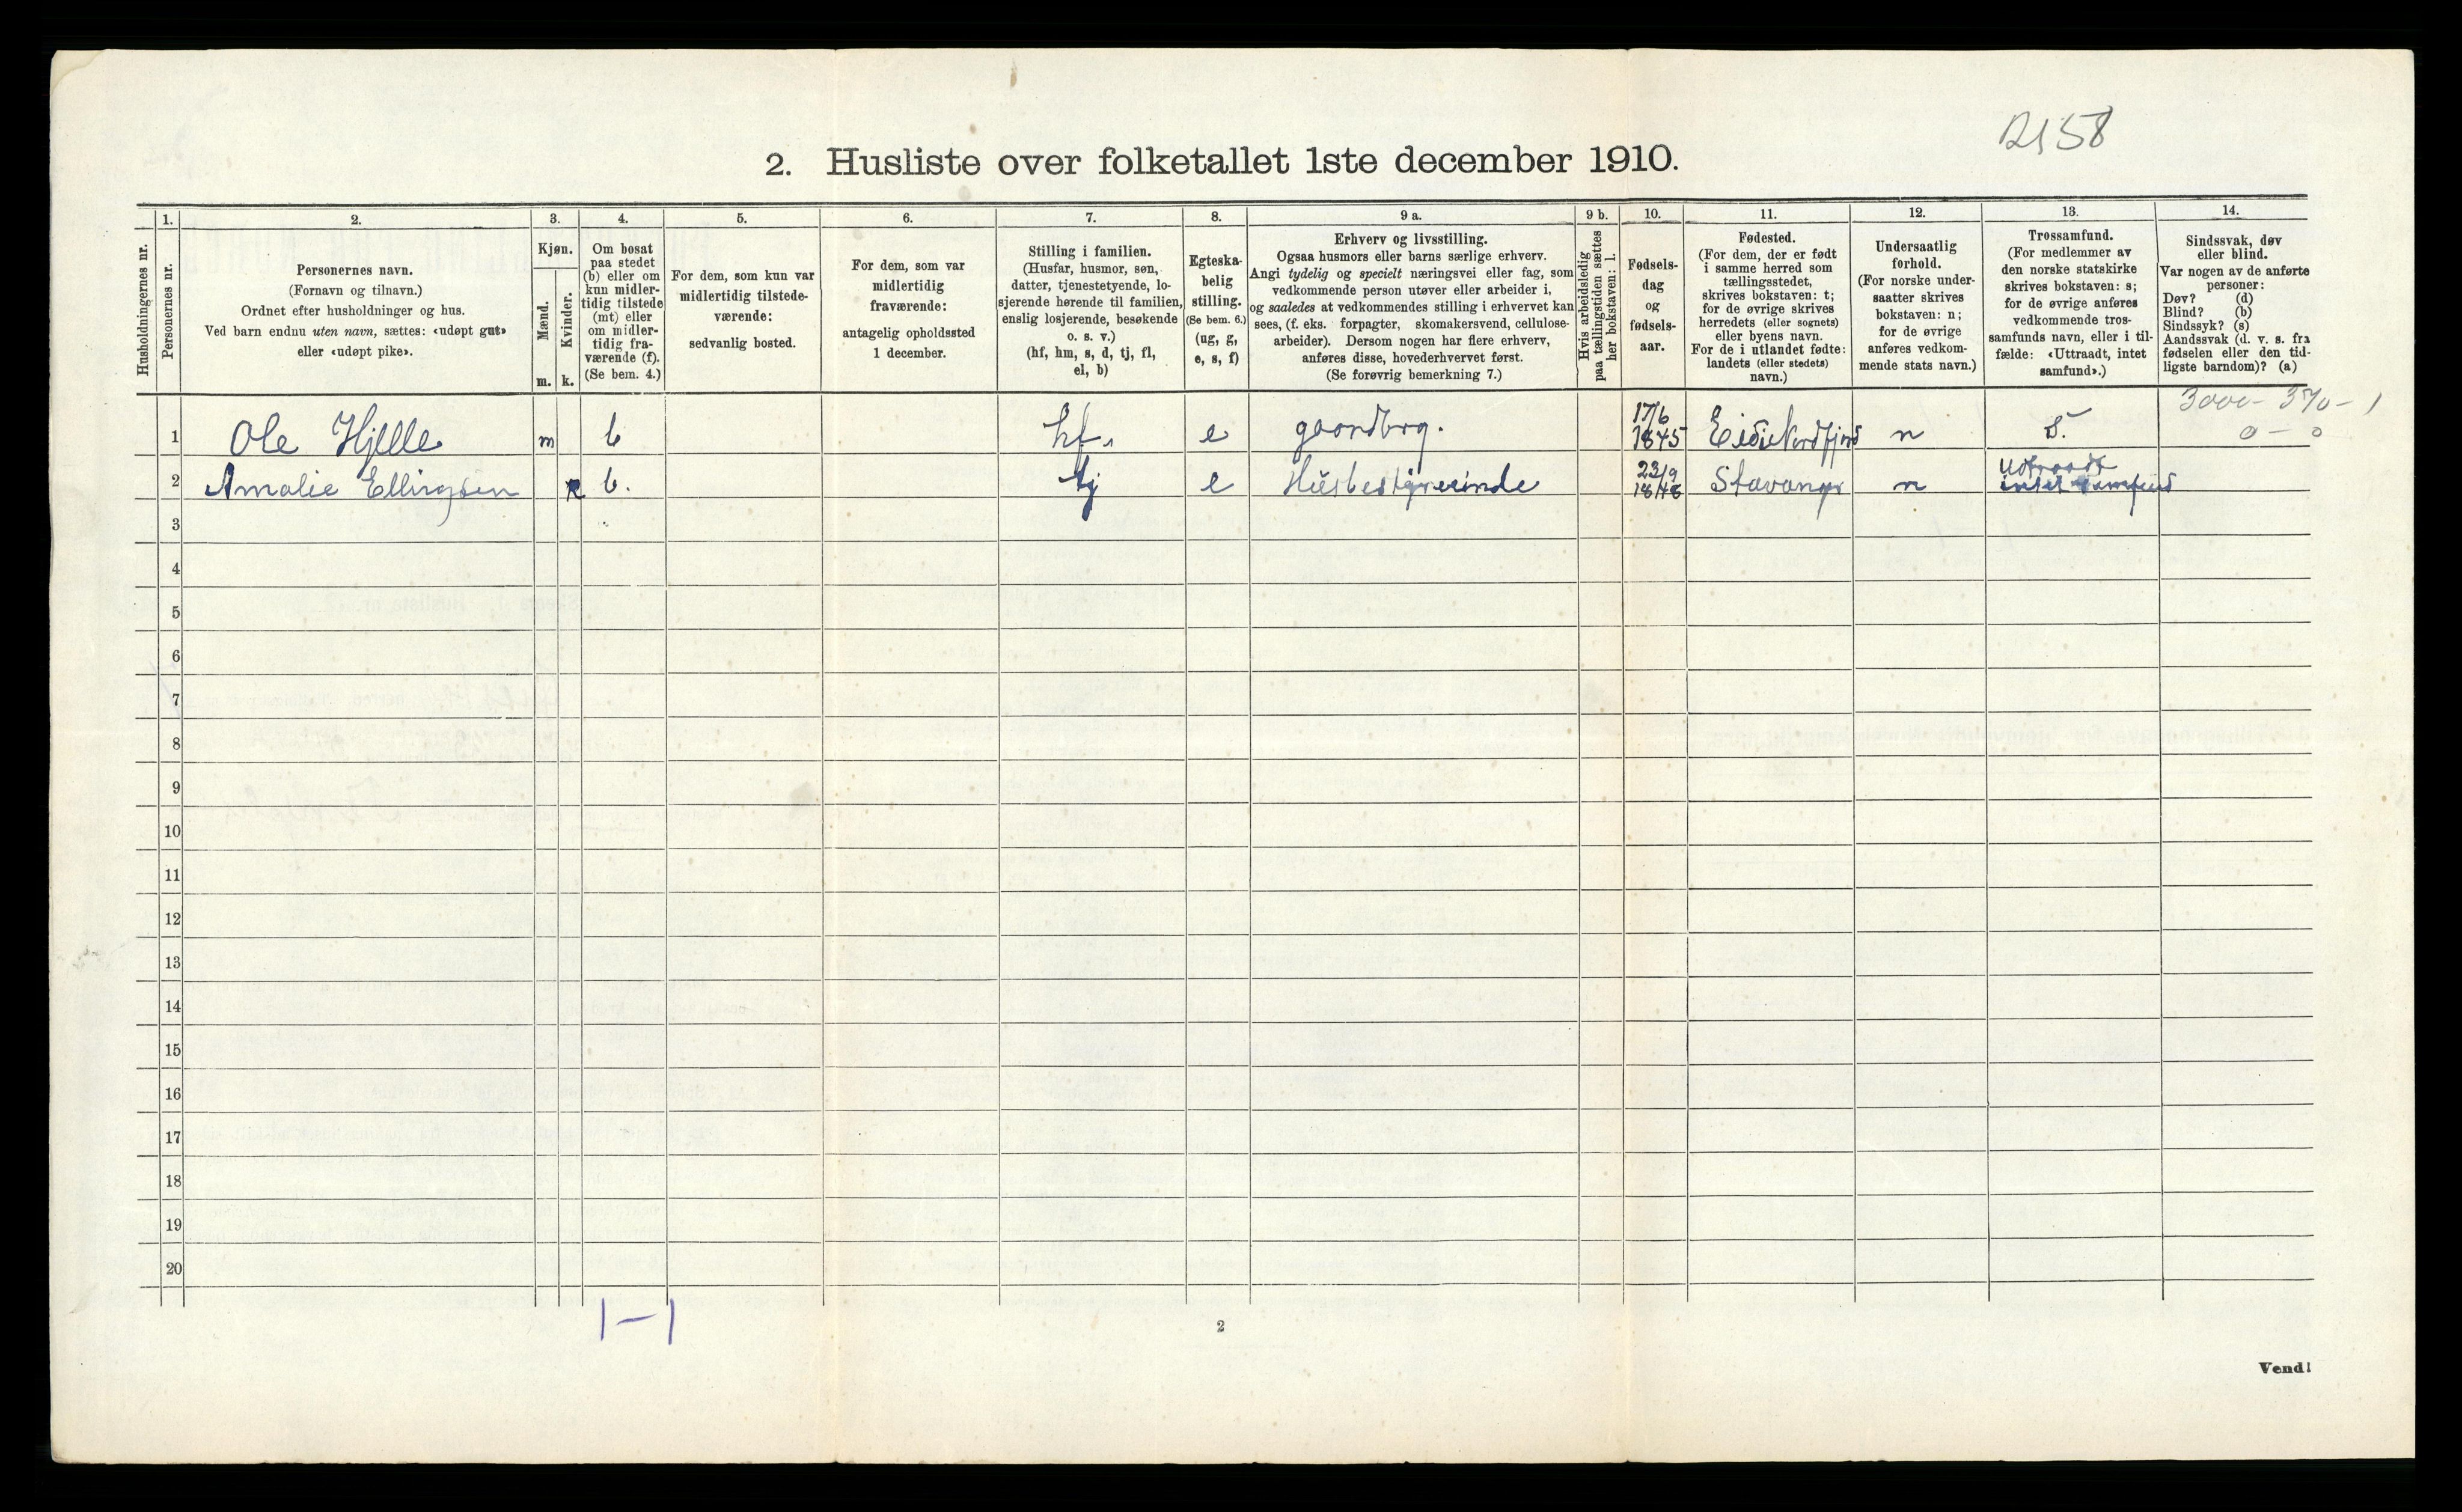 2158
2. Husliste over folketallet 1ste december 1910.
1. 2. 3. 4. 5. 6. 7. 8. 9 a. 9 b. 10. 11. 12. 13. 14.
Husholdningernes nr.
Personernes nr.
Personernes navn.
(Fornavn og tilnavn.)
Ordnet efter husholdninger og hus.
Ved barn endnu uten navn, sættes: «udøpt gut»
eller «udøpt pike».
Kjøn.
Mænd.
m.
Kvinder.
k.
Om bosat
paa stedet
(b) eller om
kun midler-
tidig tilstede
(mt) eller
om midler-
tidig fra-
værende (f).
(Se bem. 4.)
For dem, som kun var
midlertidig tilstede-
værende:
sedvanlig bosted.
For dem, som var
midlertidig
fraværende:
antagelig opholdssted
1 december.
Stilling i familien.
(Husfar, husmor, søn,
datter, tjenestetyende, lo-
sjerende hørende til familien,
enslig losjerende, besøkende
o. s. v.)
(hf, hm, s, d, tj, fl,
el, b)
Egteska-
belig
stilling.
(Se bem. 6.)
(ug, g,
e, s, f)
Erhverv og livsstilling.
Ogsaa husmors eller barns særlige erhverv.
Angi tydelig og specielt næringsvei eller fag, som
vedkommende person utøver eller arbeider i,
og saaledes at vedkommendes stilling i erhvervet kan
sees, (f. eks. forpagter, skomakersvend, cellulose-
arbeider). Dersom nogen har flere erhverv,
anføres disse, hovederhvervet først.
(Se forøvrig bemerkning 7.)
Hvis arbeidsledig
paa tællingstiden sættes
her bokstaven: l.
Fødsels-
dag
og
fødsels-
aar.
Fødested.
(For dem, der er født
i samme herred som
tællingsstedet,
skrives bokstaven: t;
for de øvrige skrives
herredets (eller sognets)
eller byens navn.
For de i utlandet fødte:
landets (eller stedets)
navn.)
Undersaatlig
forhold.
(For norske under-
saatter skrives
bokstaven: n;
for de øvrige
anføres vedkom-
mende stats navn.)
Trossamfund.
(For medlemmer av
den norske statskirke
skrives bokstaven: s;
for de øvrige anføres
vedkommende tros-
samfunds navn, eller i til-
fælde: «Uttraadt, intet
samfund».)
Sindssvak, døv
eller blind.
Var nogen av de anførte
personer:
Døv? (d)
Blind? (b)
Sindssyk? (s)
Aandssvak (d. v. s. fra
fødselen eller den tid-
ligste barndom)? (a)
3000 - 370 - 1
0 - 0
1 Ole Hjelle m b hf. e gaardbrg. 17/6 1845 Eid i Nordfjord n S.
2 Amalie Ellingsen k b. tj e Husbestyrerinde 23/9 1848 Stavanger n Udtraadt intet samfund
3
4
5
6
7
8
9
10
11
12
13
14
15
16
17
18
19
20
1 - 1
2
Vend!